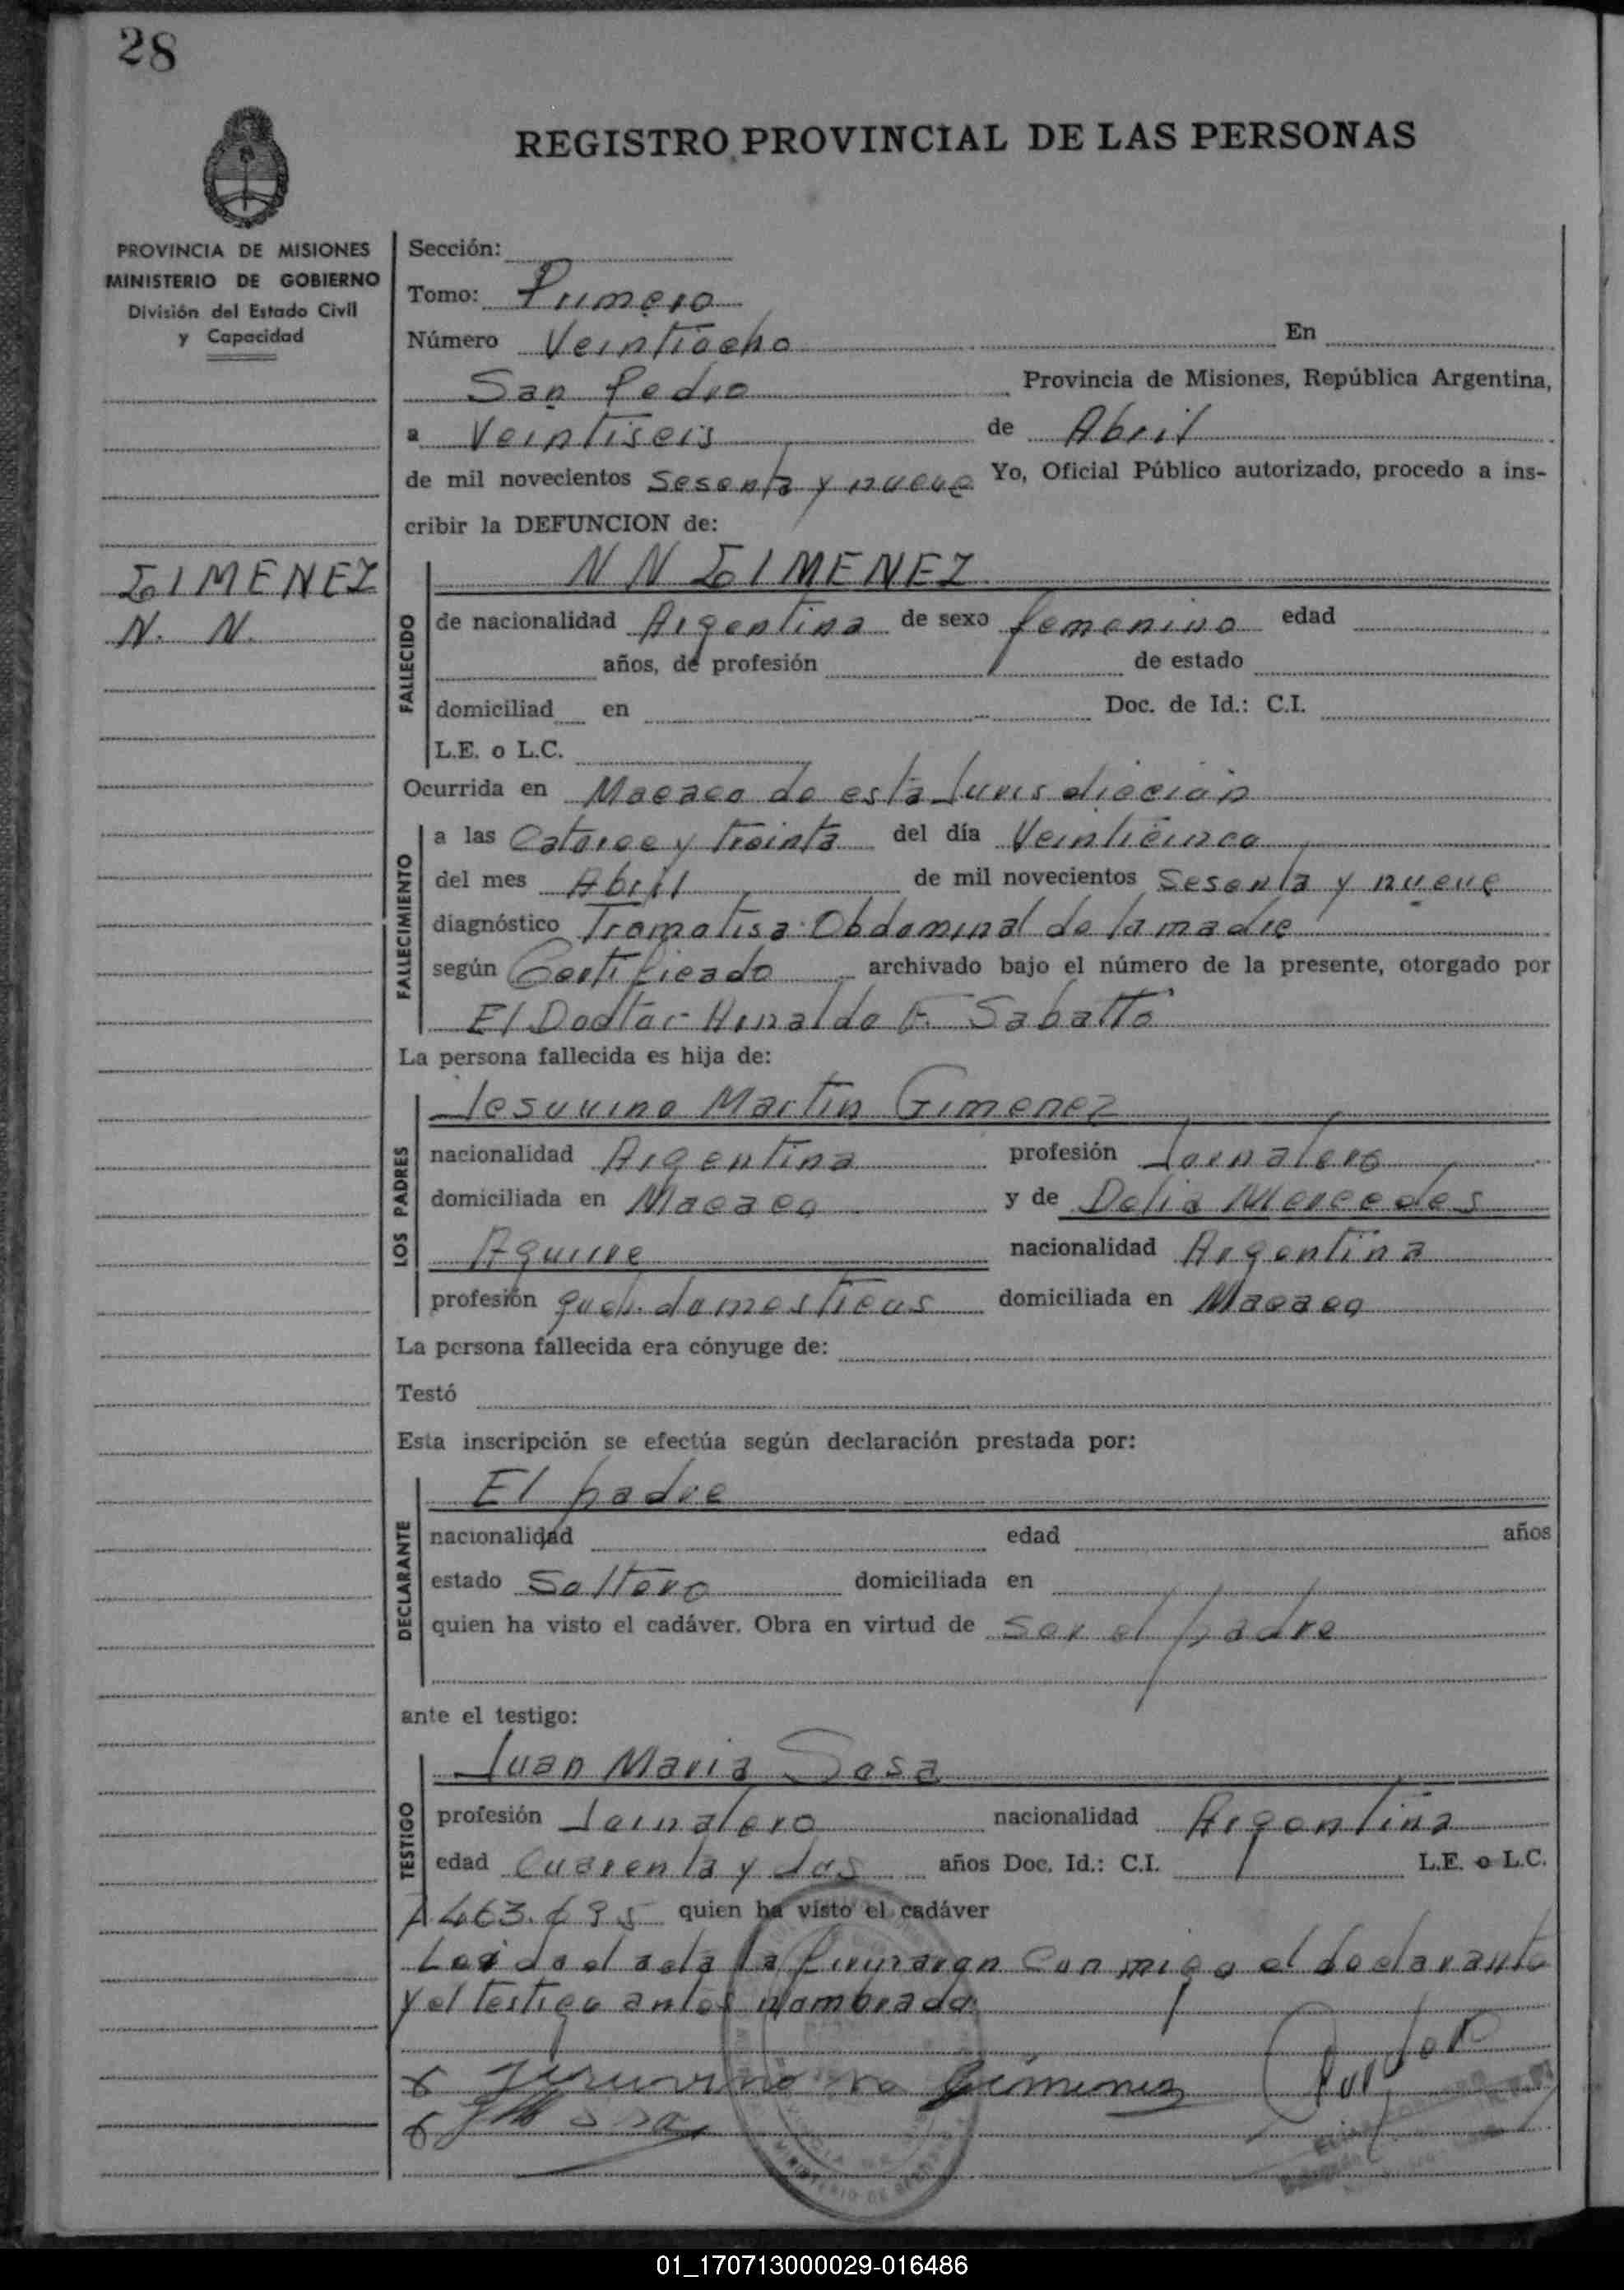 28
REGISTRO PROVINCIAL DE LAS PERSONAS
PROVINCIA DE MISIONES
MINISTERIO DE GOBIERNO
División del Estado Civil
y Capacidad
GIMENEZ
N. N.
Sección:
Tomo: Primero
Número Veintiocho En
San Pedro Provincia de Misiones, República Argentina,
a Veintiseis de Abril
de mil novecientos Sesenta y nueve Yo, Oficial Público autorizado, procedo a ins-
cribir la DEFUNCION de:
FALLECIDO
N N GIMENEZ
de nacionalidad Argentina de sexo femenino edad
años, de profesión de estado
domiciliad en Doc. de Id.: C.I.
L.E. o L.C.
Ocurrida en Macaco de esta Jurisdiccion
FALLECIMIENTO
a las Catorce y treinta del día Veinticinco
del mes Abril de mil novecientos Sesenta y nueve
diagnóstico Tramatisa Obdominal de la madre
según Certificado archivado bajo el número de la presente, otorgado por
El Doctor F. Sabatto
La persona fallecida es hija de:
LOS PADRES
Jesuvino Martin Gimenez
nacionalidad Argentina profesión Jornalero
domiciliada en Macaco y de Delia Mercedes
Aguirre nacionalidad Argentina
profesión queh. domesticos domiciliada en Macaco
La persona fallecida era cónyuge de:
Testó
Esta inscripción se efectúa según declaración prestada por:
DECLARANTE
El padre
nacionalidad edad años
estado Soltero domiciliada en
quien ha visto el cadáver. Obra en virtud de Ser el padre
ante el testigo:
TESTIGO
Juan Maria Sosa
profesión Jornalero nacionalidad Argentina
edad Cuarenta y dos años Doc. Id.: C.I. L.E. o L.C.
quien ha visto el cadáver
Leida el acta la firmaran conmigo el declarante
y el testigo antes nombrado.
Gimenez
MINISTERIO DE
01_170713000029-016486